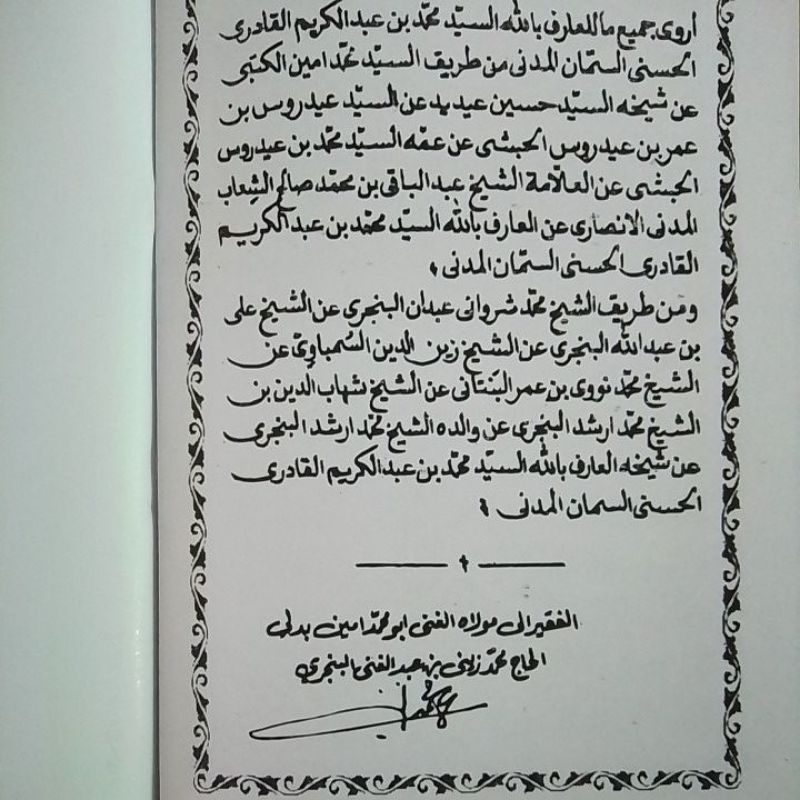 اروى جميع ما للعارف بالله السيّد محمّد بن عبد الكريم القادرى
الحسنى السمّان المدنى من طريق السيّد محمّد امين الكتبى
عن شيخه السيّد حسين عيديد عن السيّد عيدروس بن
عمر بن عيدروس الحبشى عن عمّه السيّد محمّد بن عيدروس
الحبشى عن العلاّمة الشيخ عبد الباقى بن محمّد صالح الشِعاب
المدنى الانصارى عن العارف بالله السيّد محمّد بن عبد الكريم
القادرى الحسنى السمّان المدنى ،
ومن طريق الشيخ محمّد شروانى عبدان البنجرى عن الشيخ على
بن عبد الله البنجرى عن الشيخ زين الدين السُمباوى عن
الشيخ محمّد نووى بن عمر البَنتانى عن الشيخ شهاب الدين بن
الشيخ محمّد ارشد البنجرى عن والده الشيخ محمّد ارشد البنجرى
عن شيخه العارف بالله السيّد محمّد بن عبد الكريم القادرى
الحسنى السمان المدنى ؛
الفقير الى مولاه الغنى ابو محمّد امين بدلى
الحاج محمّد زينى بن عبد الغنى البنجرى